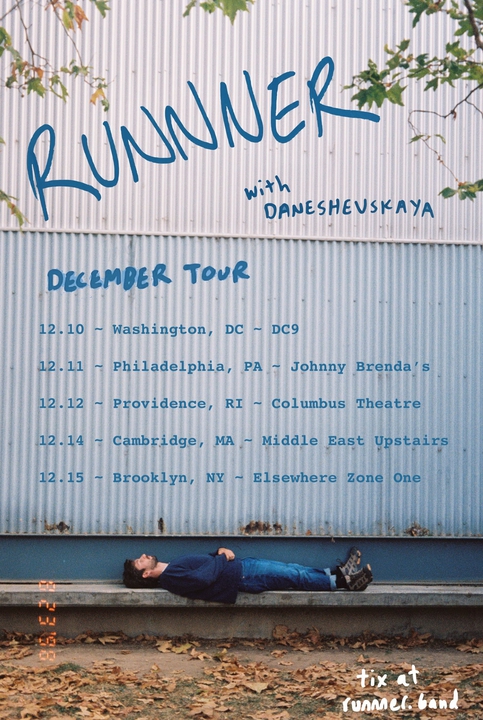 RUNNNER
with
DANESHEVSKAYA
DECEMBER TOUR
12.10 ~ Washington, DC ~ DC9
12.11 ~ Philadelphia, PA ~ Johnny Brenda's
12.12 ~ Providence, RI ~ Columbus Theatre
12.14 ~ Cambridge, MA ~ Middle East Upstairs
12.15 ~ Brooklyn, NY ~ Elsewhere Zone One
tix at
runnner.band